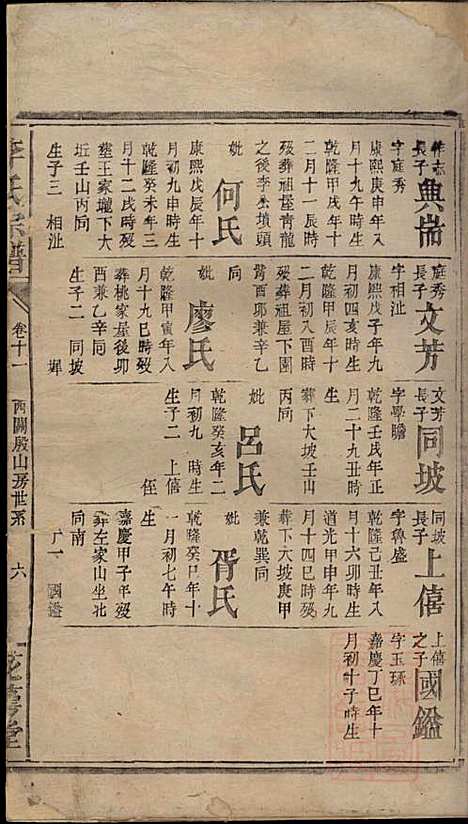 長子典耑
字庭秀
康熙庚申年八
月十九午時生
乾隆甲戌年十
二月十一辰時
歿葬祖屋青龍
之後李△墳頭
妣何氏
康熙戊辰年十
月初九申時生
乾隆癸未年三
月十二戌時歿
葬王家壠下大
坵壬山丙同
生子三 相沚
庭秀長子文芳
字相沚
康熙戊子年九
月初四亥時生
乾隆甲辰年十
二月初八酉時
歿葬祖屋下園
背酉卯兼辛乙
同
妣廖氏
乾隆甲寅年八
月十九巳時歿
葬桃家屋後卯
酉兼乙辛同
生子二 同坡
輝
文芳長子同坡
字學瞻
乾隆壬戌年正
月二十九丑時
生
葬下大坡壬山
丙同
妣呂氏
乾隆癸亥年二
月初九 時生
生子二 上僖
侄
同坡長子上僖
字魯盛
乾隆己丑年八
月十六卯時生
道光甲申年九
月十四巳時歿
葬下大坡庚甲
兼乾巽同
妣胥氏
乾隆癸巳年十
一月初七午時
生
嘉慶甲子年歿
葬左家山坐北
向南
國鑑
上僖之子國鑑
字玉琢
嘉慶丁巳年十
月初十子時生
李氏宗譜
卷十一
西關殿山房世系
六